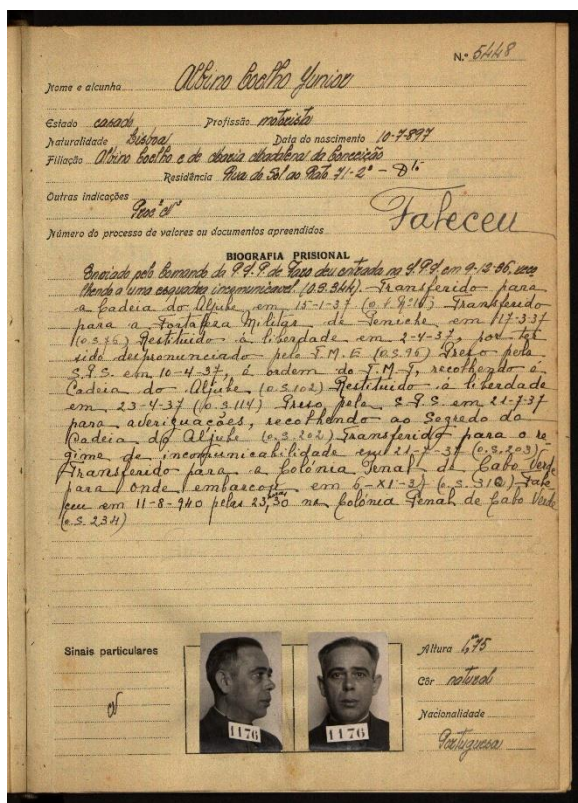 N.º 5448
Nome e alcunha Albino Coelho Junior
Estado casado Profissão motorista
Naturalidade Lisboa Data do nascimento 10-7-897
Filiação Albino Coelho e de Maria Madalena da Conceição
Residência Rua do Sol ao Rato 71-2º - Dtº
Outras indicações
Faleceu
Número do processo de valores ou documentos apreendidos
BIOGRAFIA PRISIONAL
Enviado pelo Comando da P.S.P. de deu entrada na S.P.S. em 9-12-36, reco
lhendo a uma esquadra incomunicavel. (o.s.344). Transferido para
a Cadeia do Aljube em 15-1-37 Transferido
para a Fortaleza Militar de Peniche em 17-3-37
(o.s.76) Restituido á liberdade em 2-4-37, por ter
sido despronunciado pelo T.M.E (o.s.96) Preso pela
S.P.S. em 10-4-37, á ordem do recolhendo á
Cadeia do Aljube (o.s.102) Restituido á liberdade
em 23-4-37 (o.s.114) Preso pela S.P.S em 21-7-37
para averiguações, recolhendo ao Segredo da
Cadeia do Aljube (o.s.202) Transferido para o re
gime de incomunicabilidade em 21-7-37 (o.s.203)
Transferido para a Colónia Penal de Cabo Verde
para onde embarcou em 6-XI-37 (o.s.310) Fale
ceu em 11-8-940 pelas 23,30 na Colónia Penal de Cabo Verde
(o.s.234)
Sinais particulares
1176
1176
Altura 1,m75
Côr natural
Nacionalidade
Portuguesa